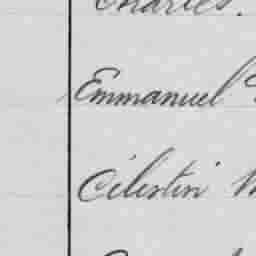 Charles.
Emmanuel
Célestin